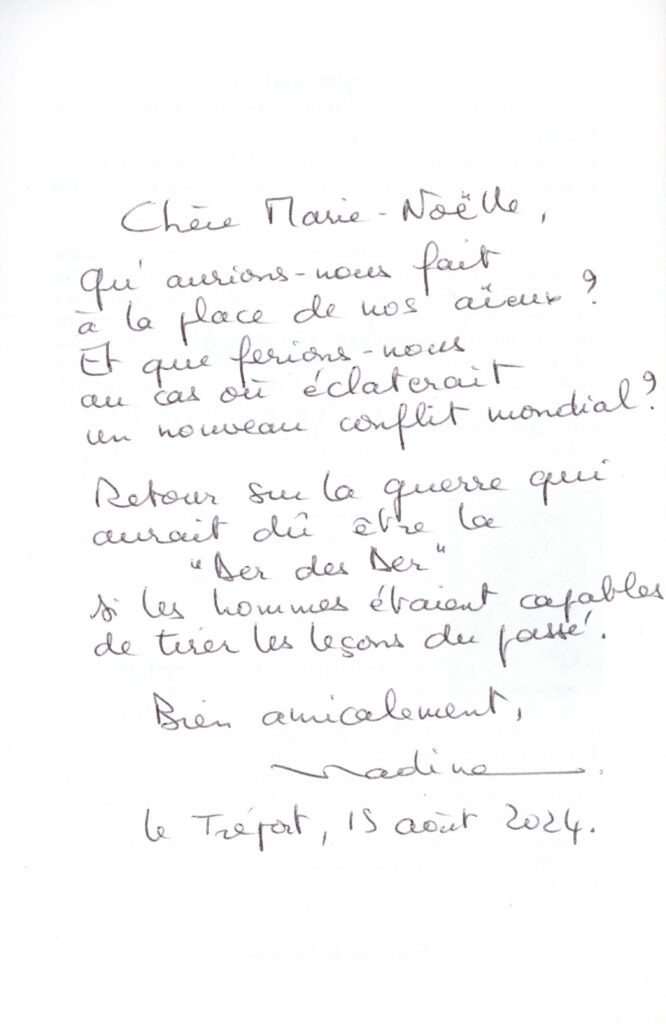 Chère Marie-Noëlle,
Qu'aurions-nous fait
à la place de nos aïeux ?
Et que ferions-nous
au cas où éclaterait
un nouveau conflit mondial ?
Retour sur la guerre qui
aurait dû être la
"Der des Der"
si les hommes étaient capables
de tirer les leçons du passé.
Bien amicalement,
Nadine
Le Tréport, 15 août 2024.